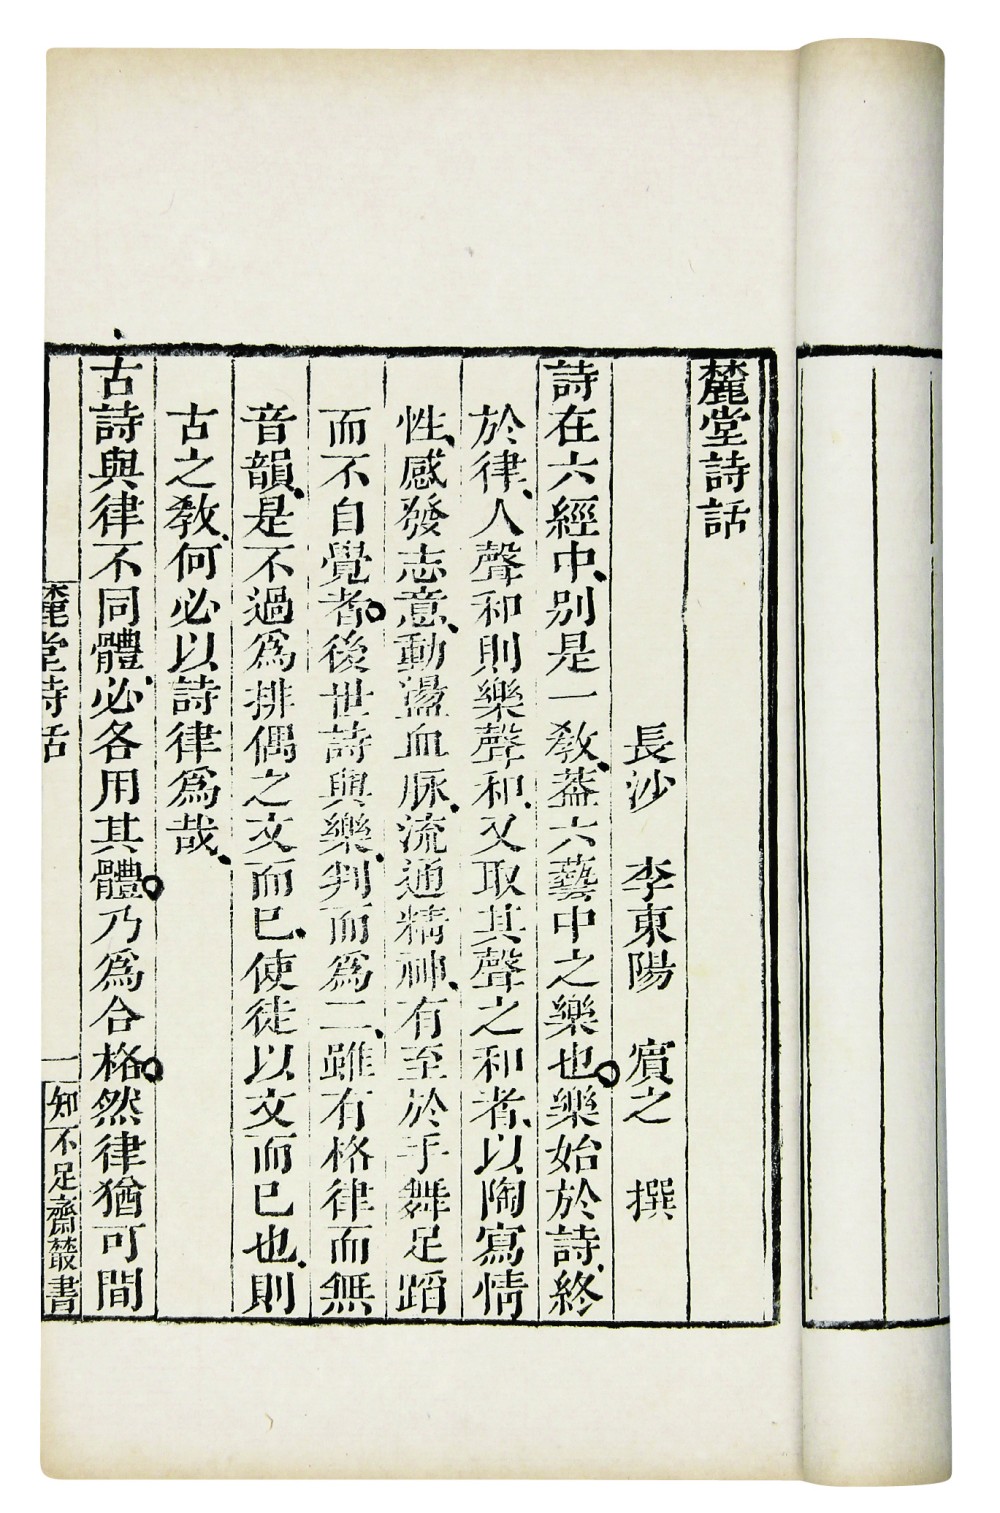 麓堂詩話
長沙 李東陽 賓之 撰
詩在六經中、别是一敎、葢六藝中之樂也。樂始於詩、終
於律、人聲和則樂聲和、又取其聲之和者、以陶寫情
性、感發志意、動盪血脉、流通精神、有至於手舞足蹈
而不自覺者。後世詩與樂、判而爲二、雖有格律而無
音韻、是不過爲排偶之文而已、使徒以文而已也、則
古之敎、何必以詩律爲哉、
古詩與律不同體、必各用其體。乃爲合格。然律猶可間
麓堂詩話 一 知不足齋叢書